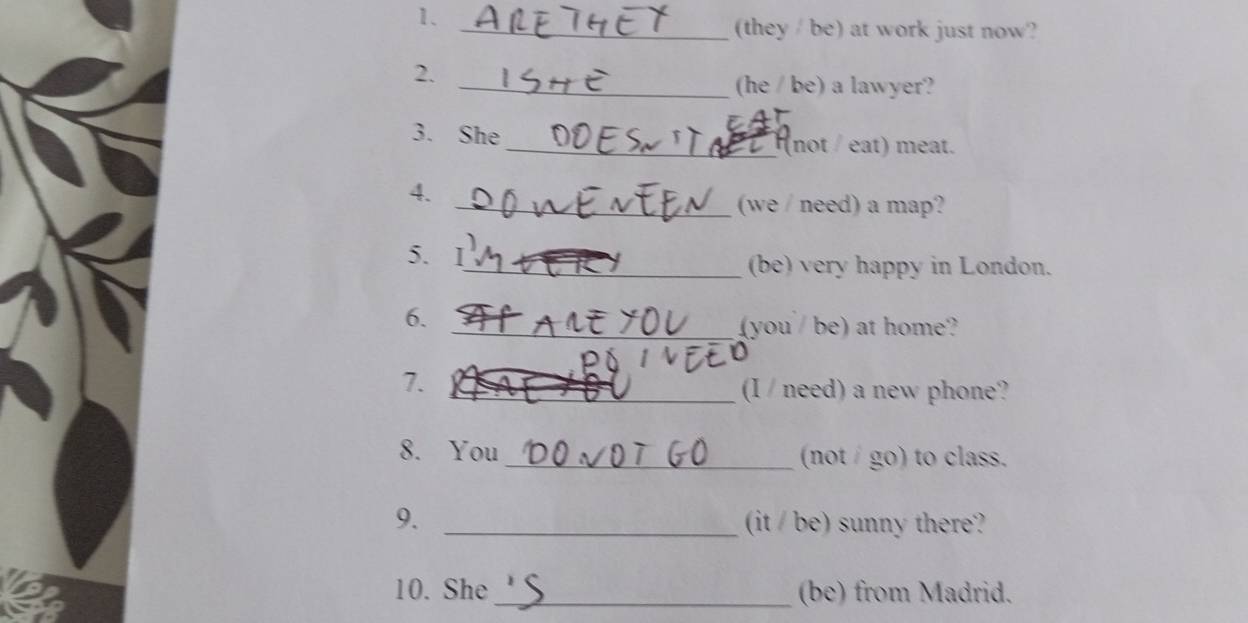 1. ARE THEY (they / be) at work just now?
2. IS HE (he / be) a lawyer?
3. She DOESN'T EAT (not / eat) meat.
4. DO WE NEEN (we / need) a map?
5. I'M (be) very happy in London.
6. ARE YOU (you / be) at home?
7. DO I NEED (I / need) a new phone?
8. You DO NOT GO (not / go) to class.
9. (it / be) sunny there?
10. She 'S (be) from Madrid.